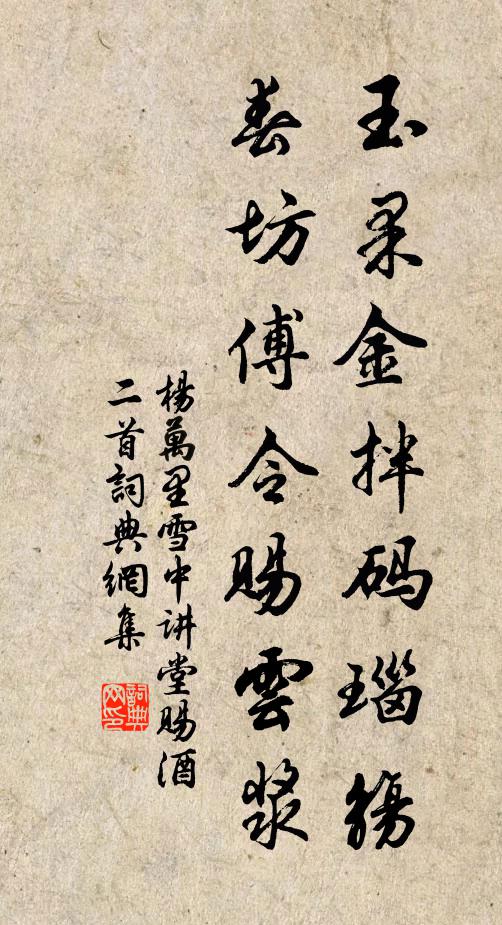 玉果金拌码瑙觴
春坊傅令賜雲漿
楊萬里雪中讲堂賜酒
二首詞典網集
詞典
网印